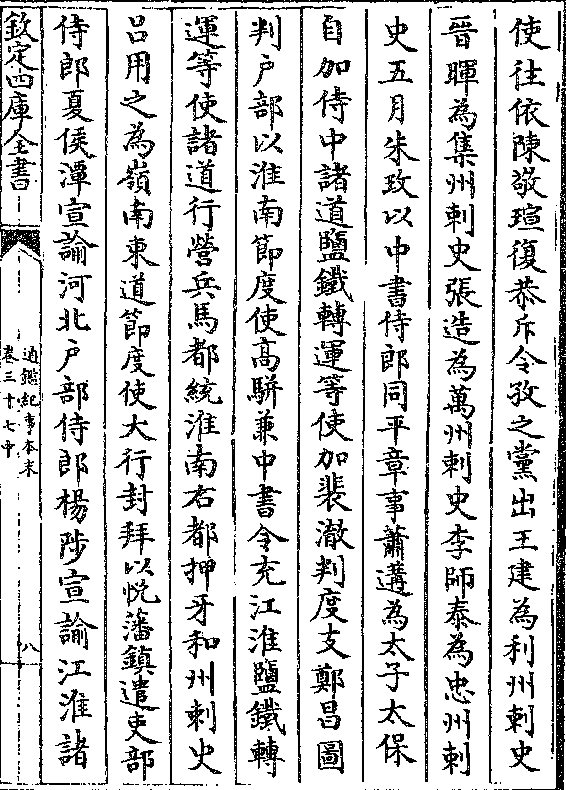 使往依陳敬瑄復恭斥令孜之黨出王建為利州刺史
晉暉為集州刺史張造為萬州刺史李師泰為忠州刺
史五月朱玫以中書侍郎同平章事蕭遘為太子太保
自加侍中諸道鹽鐵轉運等使加裴澈判度支鄭昌圖
判户部以淮南節度使高駢兼中書令充江淮鹽鐵轉
運等使諸道行營兵馬都統淮南右都押牙和州刺史
吕用之為嶺南東道節度使大行封拜以悦藩鎮遣吏部
侍郎夏侯潭宣諭河北户部侍郎楊陟宣諭江淮諸
欽定四庫全書
通鑑紀事本末
卷三十七中
八